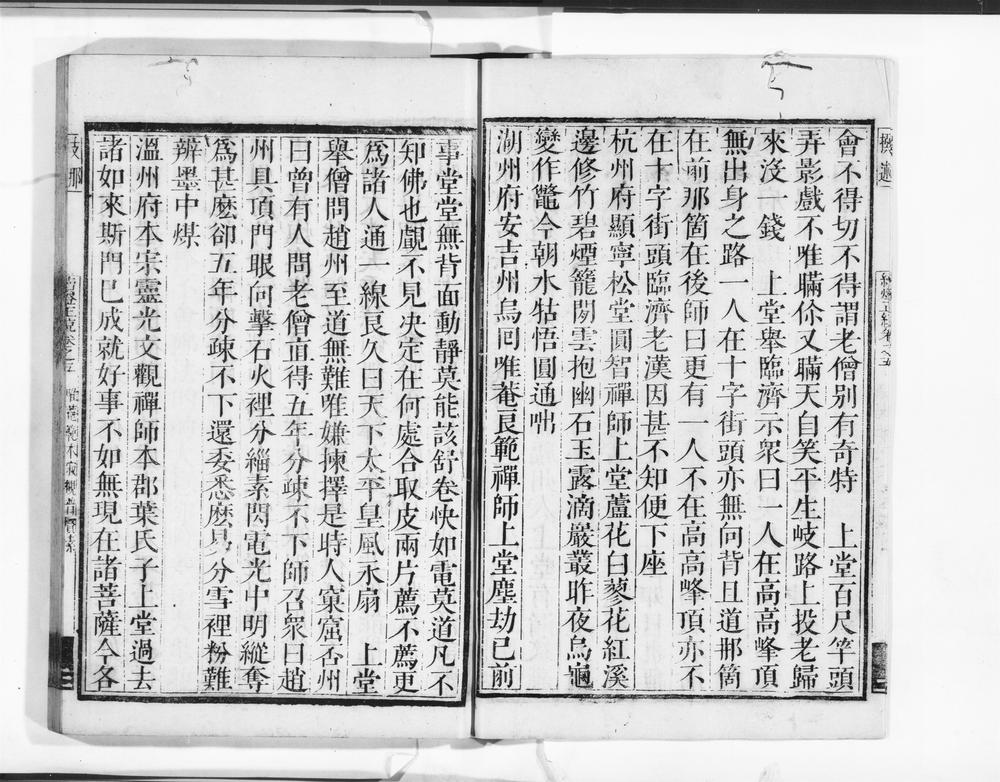 會不得切不得謂老僧別有奇特　上堂百尺竿頭
弄影戲不唯瞞你又瞞天自笑平生岐路上投老歸
來沒一錢　上堂舉臨濟示衆曰一人在高高峰頂
無出身之路一人在十字街頭亦無向背且道那箇
在前那箇在後師曰更有一人不在高高峰頂亦不
在十字街頭臨濟老漢因甚不知便下座
杭州府顯寧松堂圓智禪師上堂蘆花白蓼花紅溪
邊修竹碧煙籠閑雲抱幽石玉露滴巖叢昨夜烏龜
變作鼈今朝水牯悟圓通咄
湖州府安吉州烏回唯菴良範禪師上堂塵劫已前
事堂堂無背面動靜莫能該舒卷快如電莫道凡不
知佛也覷不見决定在何處合取皮兩片薦不薦更
爲諸人通一線良久曰天下太平皇風永扇　上堂
舉僧問趙州至道無難唯嫌揀擇是時人窠窟否州
曰曾有人問老僧直得五年分疎不下師召衆曰趙
州具頂門眼向擊石火裡分緇素閃電光中明縱奪
爲甚麽卻五年分疎不下還委悉麽易分雪裡粉難
辨墨中煤
溫州府本宗靈光文觀禪師本郡葉氏子上堂過去
諸如來斯門已成就好事不如無現在諸菩薩今各